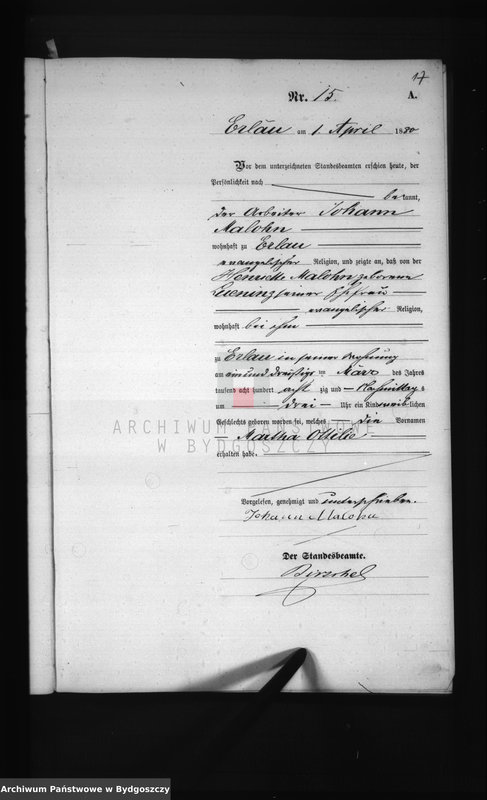 17
Nr. 15. A.
Erlau am 1. April 1880
Vor dem unterzeichneten Standesbeamten erschien heute, der
Persönlichkeit nach
bekannt,
der Arbeiter Johann
Malohn
wohnhaft zu Erlau
evangelischer Religion, und zeigte an, daß von der
Henriette Malohn geborene
seiner Ehefrau
evangelischer Religion,
wohnhaft bei ihm
zu Erlau in seiner Wohnung
am einunddreißigsten März des Jahres
tausend acht hundert acht zig und Nachmittags
um drei Uhr ein Kind weiblichen
Geschlechts geboren worden sei, welches die Vornamen
Martha Ottilie
erhalten habe.
Vorgelesen, genehmigt und unterschrieben.
Johann Malohn
Der Standesbeamte.
ARCHIWUM PAŃSTWOWE
W BYDGOSZCZY
Archiwum Państwowe w Bydgoszczy